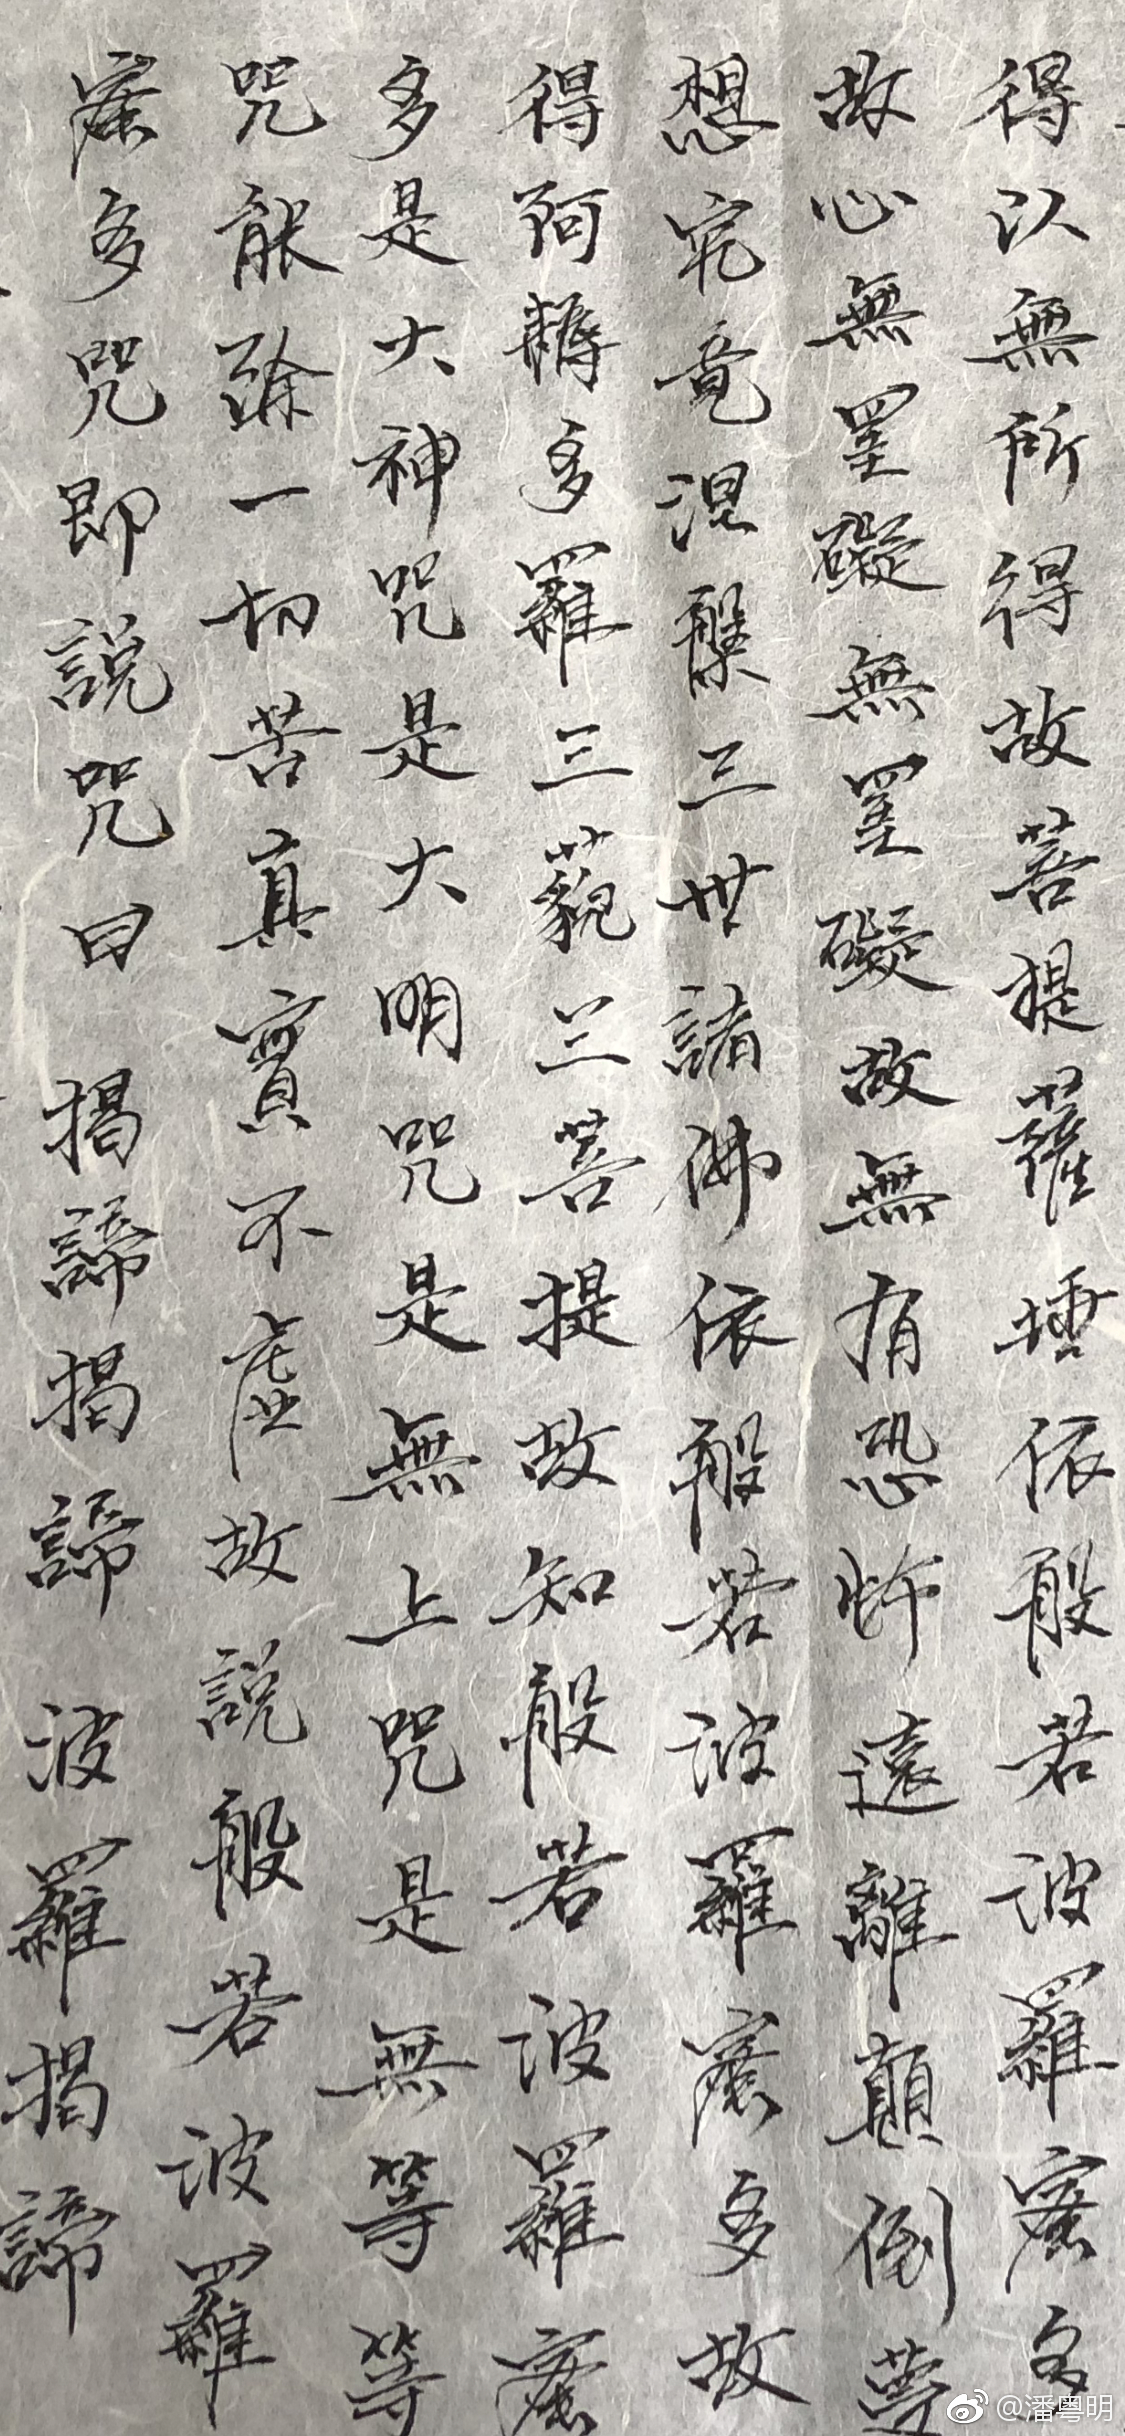 得以無所得故菩提薩埵依般若波羅蜜多
故心無罣礙無罣礙故無有恐怖遠離顛倒夢
想究竟涅槃三世諸佛依般若波羅蜜多故
得阿耨多羅三藐三菩提故知般若波羅蜜
多是大神咒是大明咒是無上咒是無等等
咒能除一切苦真實不虛故說般若波羅
蜜多咒即說咒曰 揭諦揭諦 波羅揭諦
@潘粤明